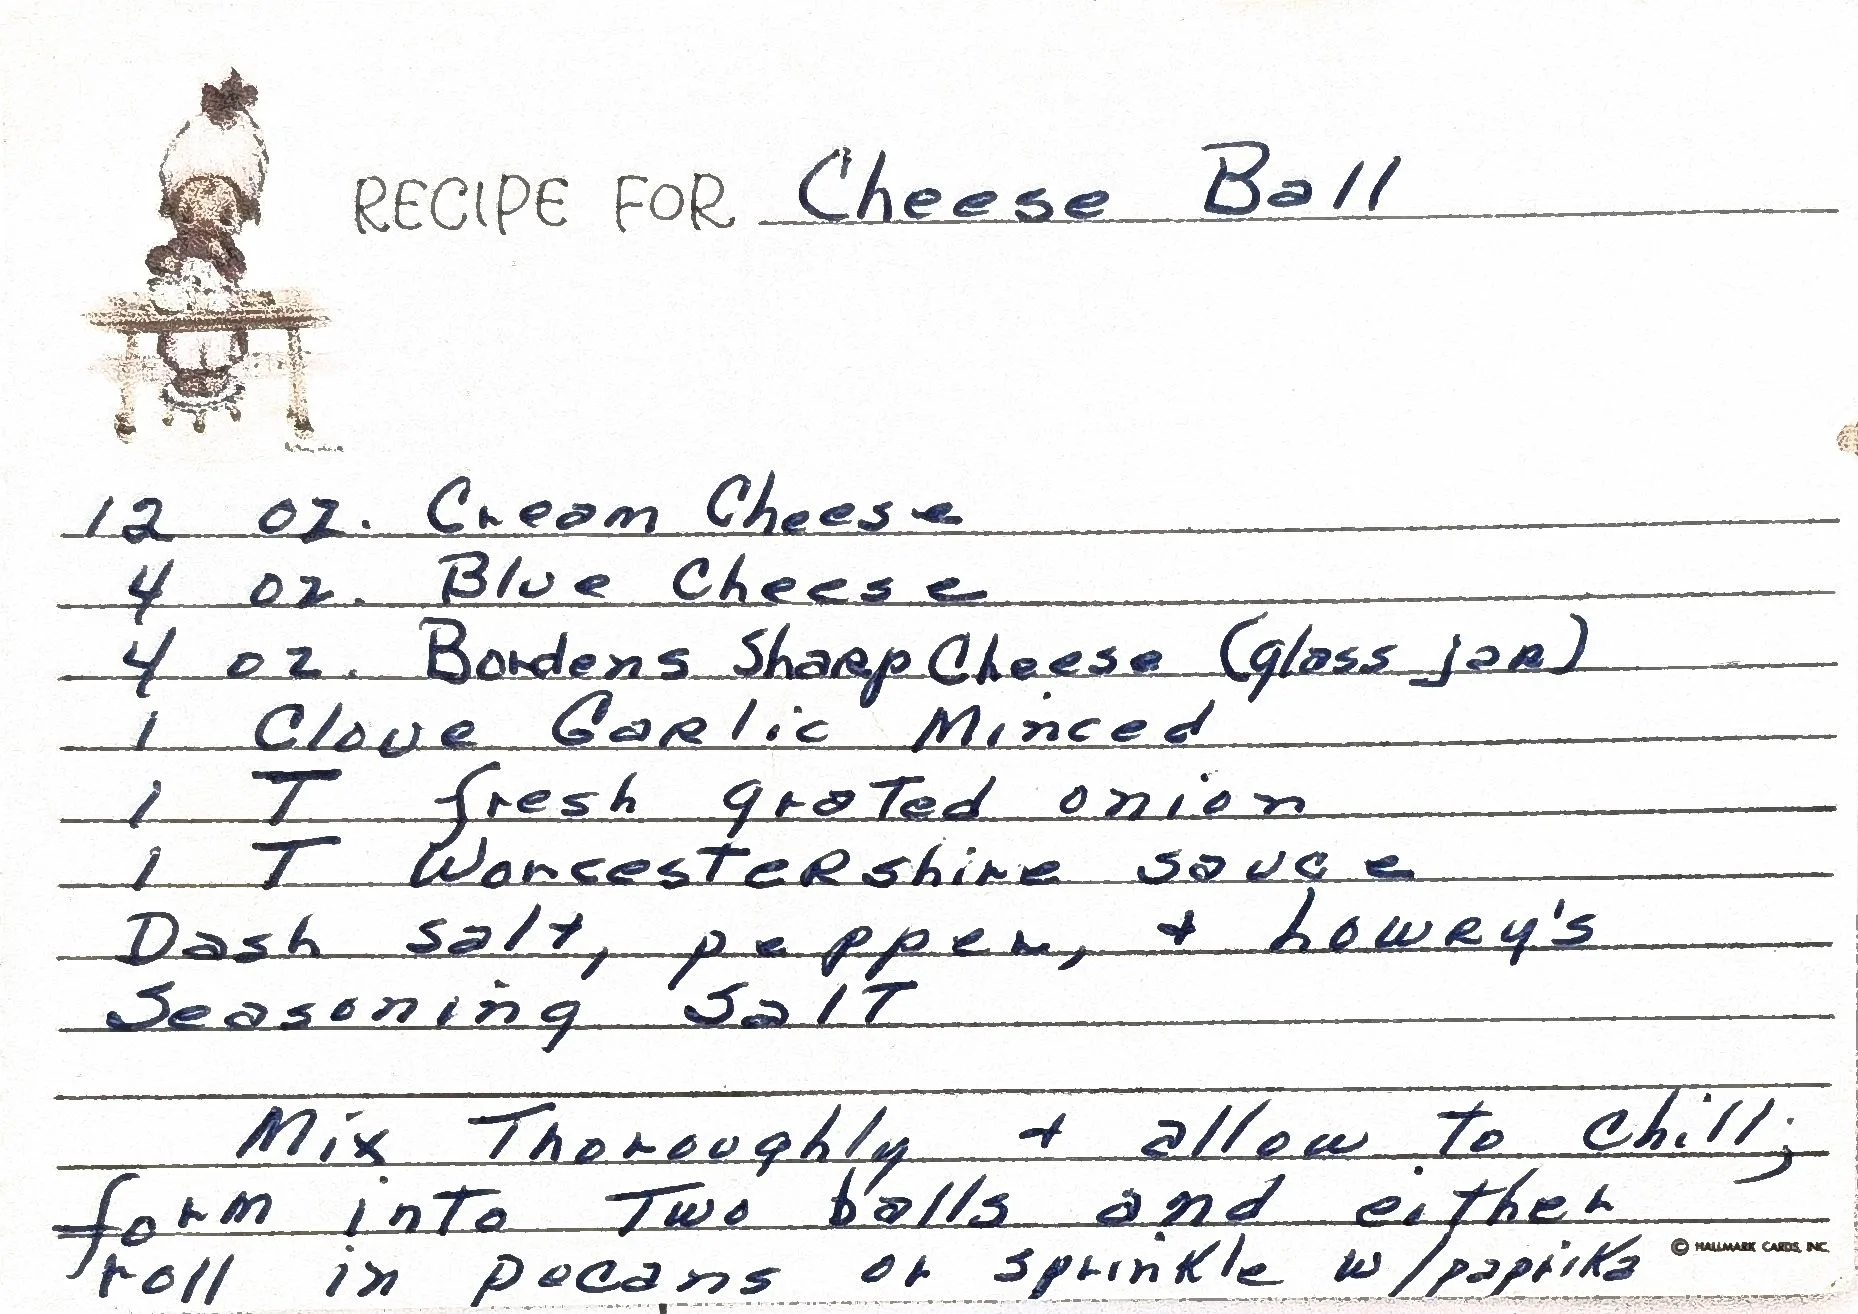 RECIPE FOR Cheese Ball
12 oz. Cream Cheese
4 oz. Blue Cheese
4 oz. Bordens Sharp Cheese (glass jar)
1 Clove Garlic Minced
1 T fresh grated onion
1 T Worcestershire sauce
Dash salt, pepper, + Lowry's
Seasoning Salt
Mix Thoroughly + allow to chill;
form into Two balls and either
roll in pecans or sprinkle w/paprika
© HALLMARK CARDS, INC.